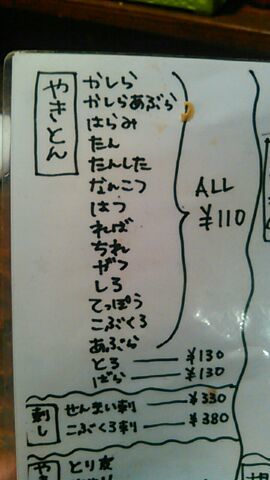 やきとん
かしら
かしらあぶら
はらみ
たん
たんした
なんこつ
はつ
ればー
ちれ
ガツ
しろ
てっぽう
こぶくろ
あぶら
ALL
¥110
とろ — ¥130
ばら — ¥130
刺し
せんまい刺 — ¥330
こぶくろ刺 — ¥380
とり皮